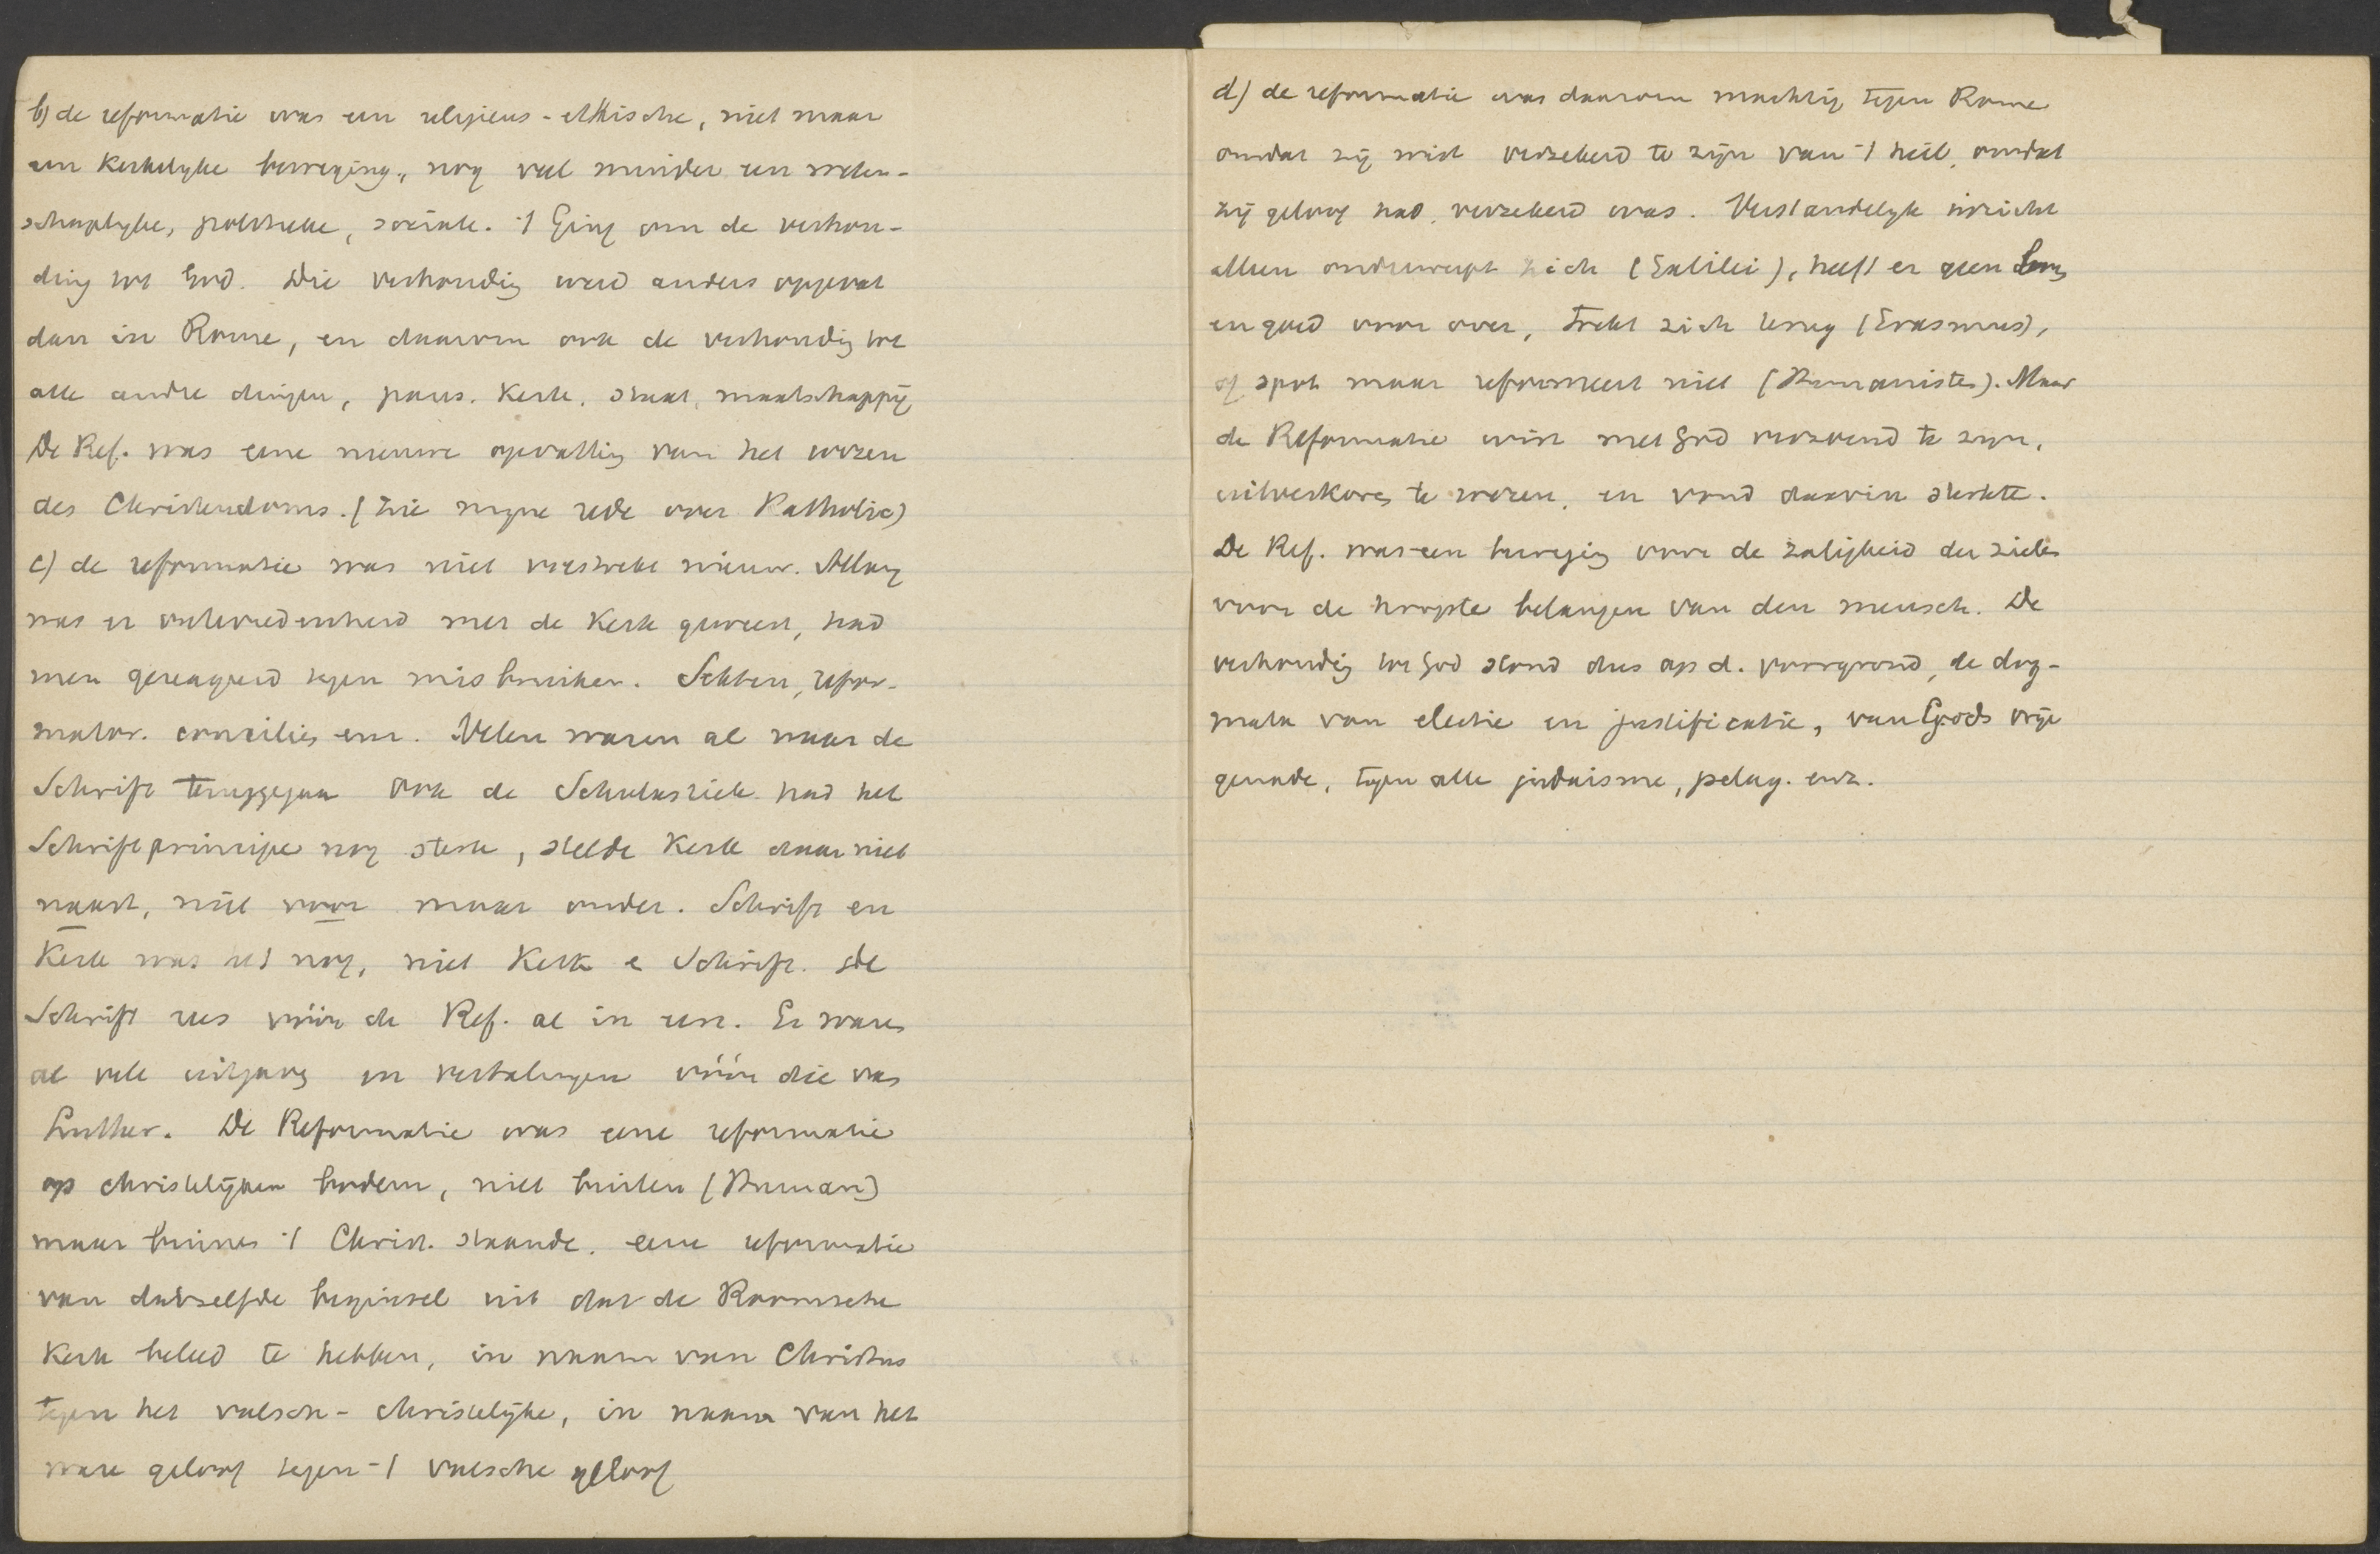 b) de reformatie was een religieus-ethische, niet maar
een kerkelyke beweging, nog veel minder een weten-
schaplyke, politieke, sociale. 't Ging om de verhou-
ding tot God. Die verhoudig werd anders opgevat
dan in Rome, en daarom ook de verhoudig tot
alle andre dingen, paus. Kerk, staat, maatschappij
De Ref. was eene nieuwe opvattig van het wezen
des Christendoms. (zie myne rede over Katholic)
c) de reformatie was niet volstrekt nieuw. Allang
was er ontevredenheid met de Kerk geweest, had
men gereageerd tegen misbruiken. Sekten, refor-
mator. concilies enz. Velen waren al naar de
Schrift teruggegaan ook de Scholastiek had het
Schriftprincipe nog sterk, stelde Kerk daar niet
naast, niet voor maar onder. Schrift en
Kerk was het nog, niet Kerk e Schrift. De
Schrift rees vóór de Ref. al in eer. Er waren
al vele uitgaves en vertalingen vóór die van
Luther. De Reformatie was eene reformatie
op christelijken bodem, niet buiten (Human)
maar binnen 't Christ. staande. eene reformatie
van datzelfde beginsel uit dat de Roomsche
Kerk beleed te hebben, in naam van Christus
tegen het valsch-christelijke, in naam van het
ware geloof tegen 't valsche geloof
d) de reformatie was daarom machtig tegen Rome
omdat zij wist verzekerd te zijn van 't heil, omdat
zij geloof had, verzekerd was. Verstandelyk inzicht
alleen onderwerpt zich (Galilei), heeft er geen
en goed voor over, trekt zich terug (Erasmus),
of spot maar reformeert niet (Humanisten). Maar
de Reformatie wist met God verzoend te zyn,
uitverkoren te wezen, en vond daarin sterkte.
De Ref. was een bewegig voor de zaligheid der zielen
voor de hoogste belangen van den mensch. De
verhoudig tot God stond dus op d. voorgrond, de dog-
mata van electie en justificatie, van Gods vrije
genade, tegen alle judaisme, pelag. enz.